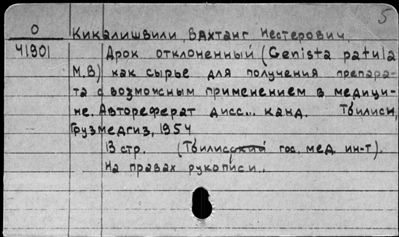 5
О Кикалишвили, Вахтанг Несторович.
41901 Дрок отклоненный (Genista patula
М.В) как сырье для получения препара-
та с возможным применением в медици-
не. Автореферат дисс... канд. Тбилиси,
Грузмедгиз, 1954
13 стр. (Тбилисский гос. мед. ин-т).
На правах рукописи.